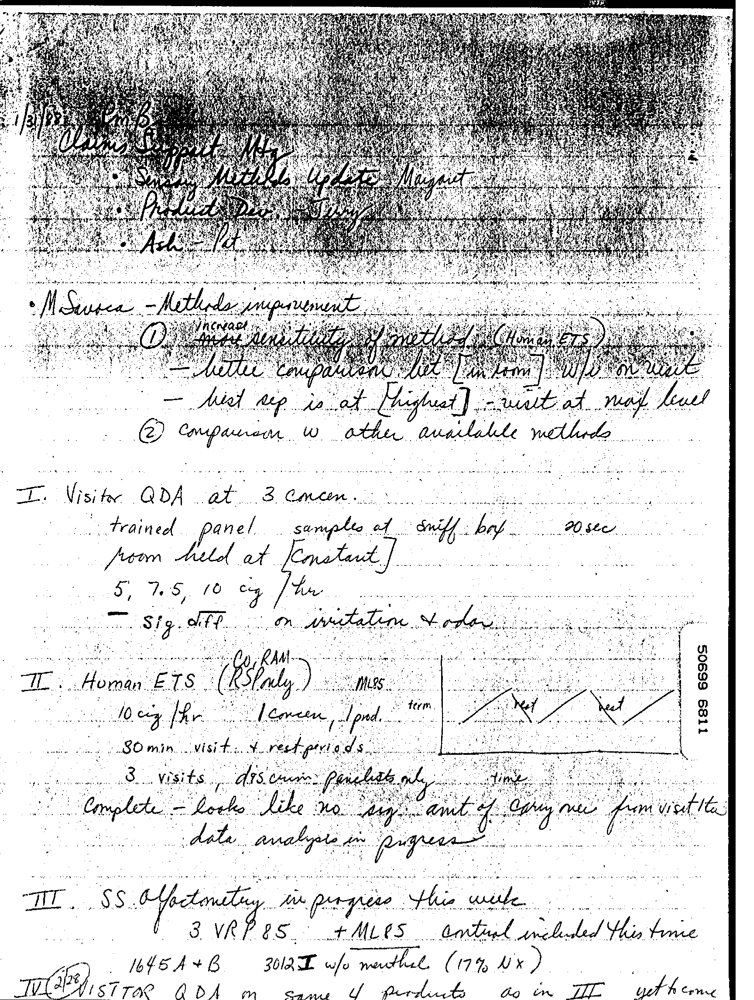 1/3/88 Rm B
Claims Support Mtg
• Sensory Methods Update Margaret
• Product Dev. Jerry
• Ash - Pat
• M. Savoca - Methods improvement
① increase sensitivity of method. (Human ETS)
- better comparison bet [in room] w/v on visit
- best sep is at [highest] - visit at max level
② comparison w other available methods
I. Visitor QDA at 3 concen.
trained panel samples at sniff box 20 sec
room held at [constant]
5, 7.5, 10 cig /hr
- sig. diff on irritation & odor
II. Human ETS (CO, RAM RSP only) ML85
10 cig /hr 1 concen, 1 prod.
term rest rest
30 min visit & rest periods
3 visits, discrim. panelists only time
Complete - looks like no sig amt of carry over from visit 1 to
data analysis in progress
III. SS Olfactometry in progress this week
3 VRP 85 + ML85 control included this time
1645 A + B 3012 I w/o menthol (17% Nx)
IV (2/28) VISITOR QDA on same 4 products as in III yet to come
50699 6811